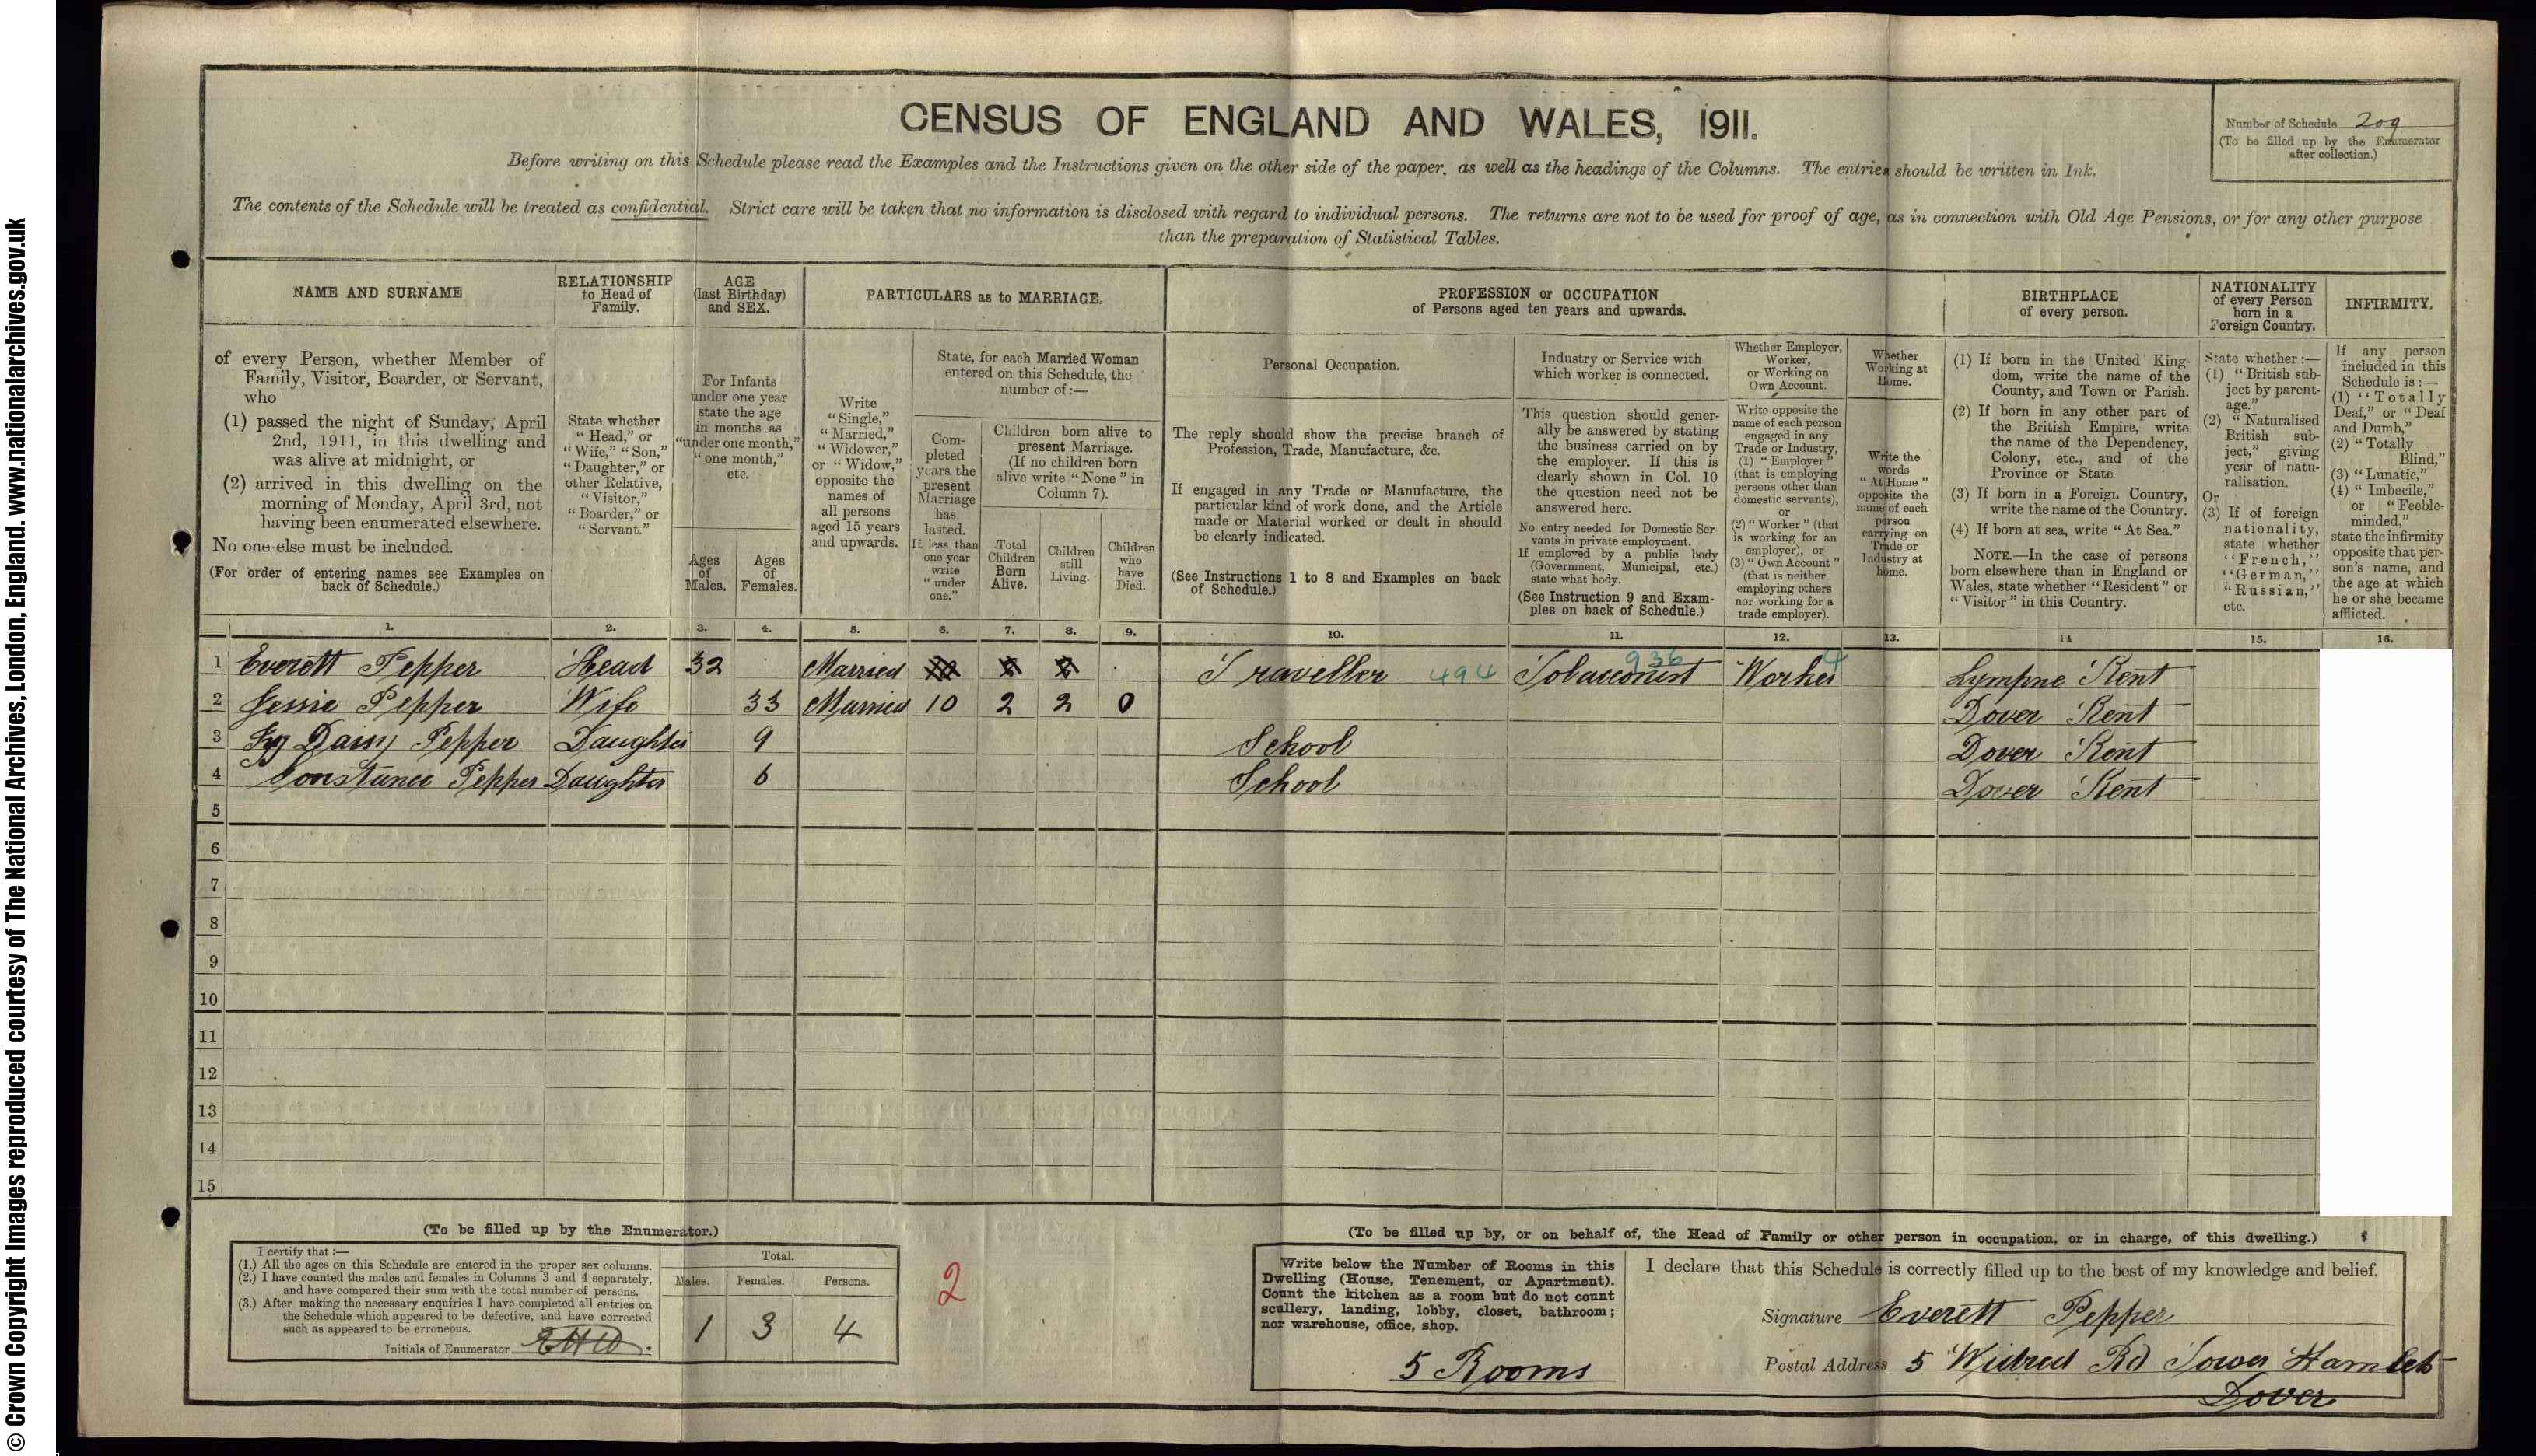 © Crown Copyright Images reproduced courtesy of The National Archives, London, England. www.nationalarchives.gov.uk
CENSUS OF ENGLAND AND WALES, 1911.
Number of Schedule 209
(To be filled up by the Enumerator
after collection.)
Before writing on this Schedule please read the Examples and the Instructions given on the other side of the paper, as well as the headings of the Columns. The entries should be written in Ink.
The contents of the Schedule will be treated as confidential. Strict care will be taken that no information is disclosed with regard to individual persons. The returns are not to be used for proof of age, as in connection with Old Age Pensions, or for any other purpose
than the preparation of Statistical Tables.
NAME AND SURNAME
of every Person, whether Member of
Family, Visitor, Boarder, or Servant,
who
(1) passed the night of Sunday, April
2nd, 1911, in this dwelling and
was alive at midnight, or
(2) arrived in this dwelling on the
morning of Monday, April 3rd, not
having been enumerated elsewhere.
No one else must be included.
(For order of entering names see Examples on
back of Schedule.)
RELATIONSHIP
to Head of
Family.
State whether
"Head," or
"Wife," "Son,"
"Daughter," or
other Relative,
"Visitor,"
"Boarder," or
"Servant."
AGE
(last Birthday)
and SEX.
For Infants
under one year
state the age
in months as
"under one month,"
"one month,"
etc.
Ages
of
Males.
Ages
of
Females.
PARTICULARS as to MARRIAGE.
Write
"Single,"
"Married,"
"Widower,"
or "Widow,"
opposite the
names of
all persons
aged 15 years
and upwards.
State, for each Married Woman
entered on this Schedule, the
number of:—
Com-
pleted
years the
present
Marriage
has
lasted.
If less than
one year
write
"under
one."
Children born alive to
present Marriage.
(If no children born
alive write "None" in
Column 7).
Total
Children
Born
Alive.
Children
still
Living.
Children
who
have
Died.
PROFESSION or OCCUPATION
of Persons aged ten years and upwards.
Personal Occupation.
The reply should show the precise branch of
Profession, Trade, Manufacture, &c.
If engaged in any Trade or Manufacture, the
particular kind of work done, and the Article
made or Material worked or dealt in should
be clearly indicated.
(See Instructions 1 to 8 and Examples on back
of Schedule.)
Industry or Service with
which worker is connected.
This question should gener-
ally be answered by stating
the business carried on by
the employer. If this is
clearly shown in Col. 10
the question need not be
answered here.
No entry needed for Domestic Ser-
vants in private employment.
If employed by a public body
(Government, Municipal, etc.)
state what body.
(See Instruction 9 and Exam-
ples on back of Schedule.)
Whether Employer,
Worker,
or Working on
Own Account.
Write opposite the
name of each person
engaged in any
Trade or Industry,
(1) "Employer"
(that is employing
persons other than
domestic servants),
or
(2) "Worker" (that
is working for an
employer), or
(3) "Own Account"
(that is neither
employing others
nor working for a
trade employer).
Whether
Working at
Home.
Write the
words
"At Home"
opposite the
name of each
person
carrying on
Trade or
Industry at
home.
BIRTHPLACE
of every person.
(1) If born in the United King-
dom, write the name of the
County, and Town or Parish.
(2) If born in any other part of
the British Empire, write
the name of the Dependency,
Colony, etc., and of the
Province or State.
(3) If born in a Foreign Country,
write the name of the Country.
(4) If born at sea, write "At Sea."
NOTE.—In the case of persons
born elsewhere than in England or
Wales, state whether "Resident" or
"Visitor" in this Country.
NATIONALITY
of every Person
born in a
Foreign Country.
State whether:—
(1) "British sub-
ject by parent-
age."
(2) "Naturalised
British sub-
ject," giving
year of natu-
ralisation.
Or
(3) If of foreign
nationality,
state whether
"French,"
"German,"
"Russian,"
etc.
INFIRMITY.
If any person
included in this
Schedule is:—
(1) "Totally
Deaf," or "Deaf
and Dumb,"
(2) "Totally
Blind,"
(3) "Lunatic,"
(4) "Imbecile,"
or "Feeble-
minded,"
state the infirmity
opposite that per-
son's name, and
the age at which
he or she became
afflicted.
1. 2. 3. 4. 5. 6. 7. 8. 9. 10. 11. 12. 13. 14 15. 16.
1 Everett Pepper Head 32 Married Traveller 494 Tobacconist 936 Worker 4 Lympne Kent
2 Jessie Pepper Wife 33 Married 10 2 2 0 Dover Kent
3 Daisy Pepper Daughter 9 School Dover Kent
4 Constance Pepper Daughter 6 School Dover Kent
5
6
7
8
9
10
11
12
13
14
15
(To be filled up by the Enumerator.)
I certify that:—
(1.) All the ages on this Schedule are entered in the proper sex columns.
(2.) I have counted the males and females in Columns 3 and 4 separately,
and have compared their sum with the total number of persons.
(3.) After making the necessary enquiries I have completed all entries on
the Schedule which appeared to be defective, and have corrected
such as appeared to be erroneous.
Initials of Enumerator
Total.
Males. Females. Persons.
1 3 4
2
(To be filled up by, or on behalf of, the Head of Family or other person in occupation, or in charge, of this dwelling.)
Write below the Number of Rooms in this
Dwelling (House, Tenement, or Apartment).
Count the kitchen as a room but do not count
scullery, landing, lobby, closet, bathroom;
nor warehouse, office, shop.
5 Rooms
I declare that this Schedule is correctly filled up to the best of my knowledge and belief.
Signature Everett Pepper
Postal Address 5 Widred Rd Tower Hamlets
Dover